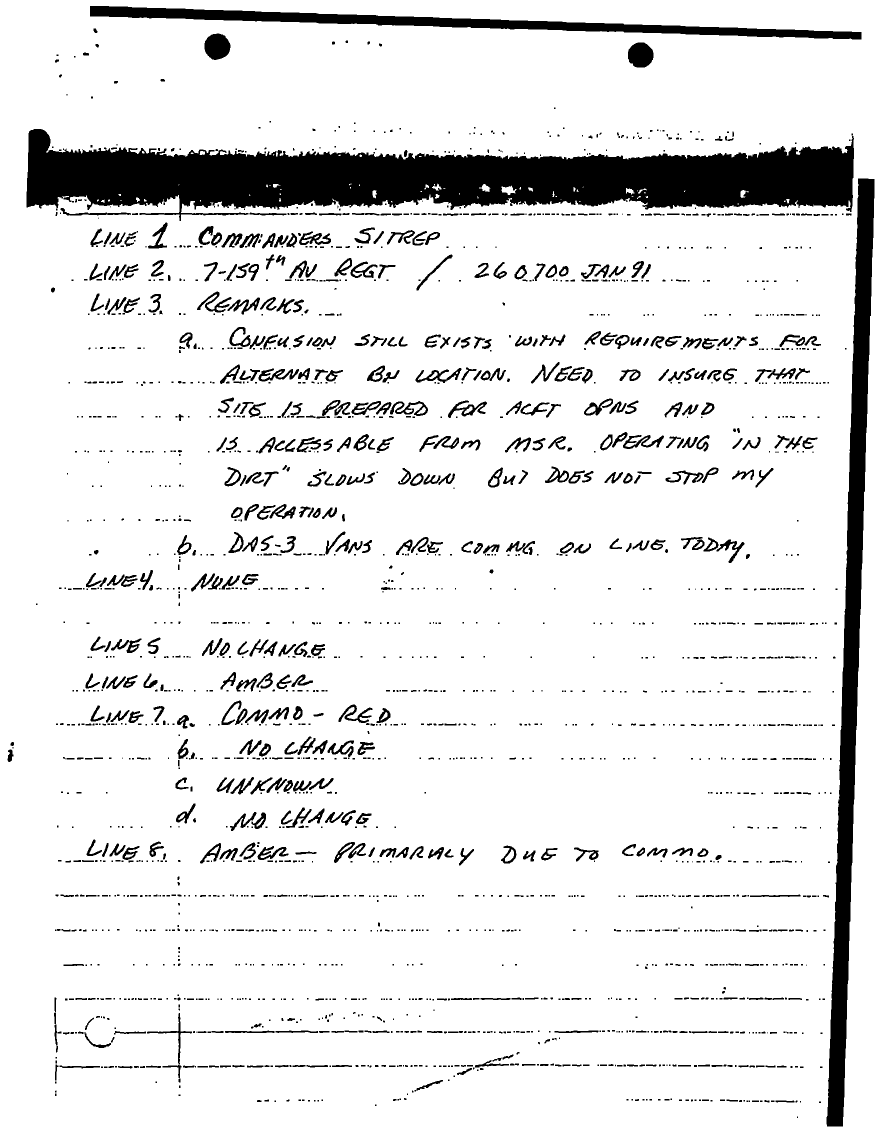 LINE 1 COMMANDERS SITREP
LINE 2. 7-159th AV REGT / 260700 JAN 91
LINE 3. REMARKS.
a. CONFUSION STILL EXISTS WITH REQUIREMENTS FOR
ALTERNATE BN LOCATION. NEED TO INSURE THAT
SITE IS PREPARED FOR ACFT OPNS AND
IS ACCESSABLE FROM MSR. OPERATING "IN THE
DIRT" SLOWS DOWN BUT DOES NOT STOP MY
OPERATION.
b. DAS-3 VANS ARE COMING ON LINE. TODAY.
LINE 4. NONE
LINE 5 NO CHANGE
LINE 6. AMBER
LINE 7. a. COMMO - RED
b. NO CHANGE
c. UNKNOWN
d. NO CHANGE
LINE 8. AMBER - PRIMARIALY DUE TO COMMO.